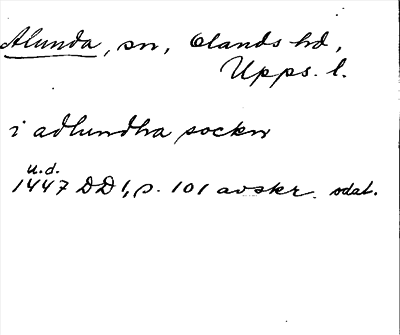 Alunda, sn, Olands hd,
Upps. l.
i adlundha sockn
u.d.
1447 DD 1, s. 101 avskr. odat.